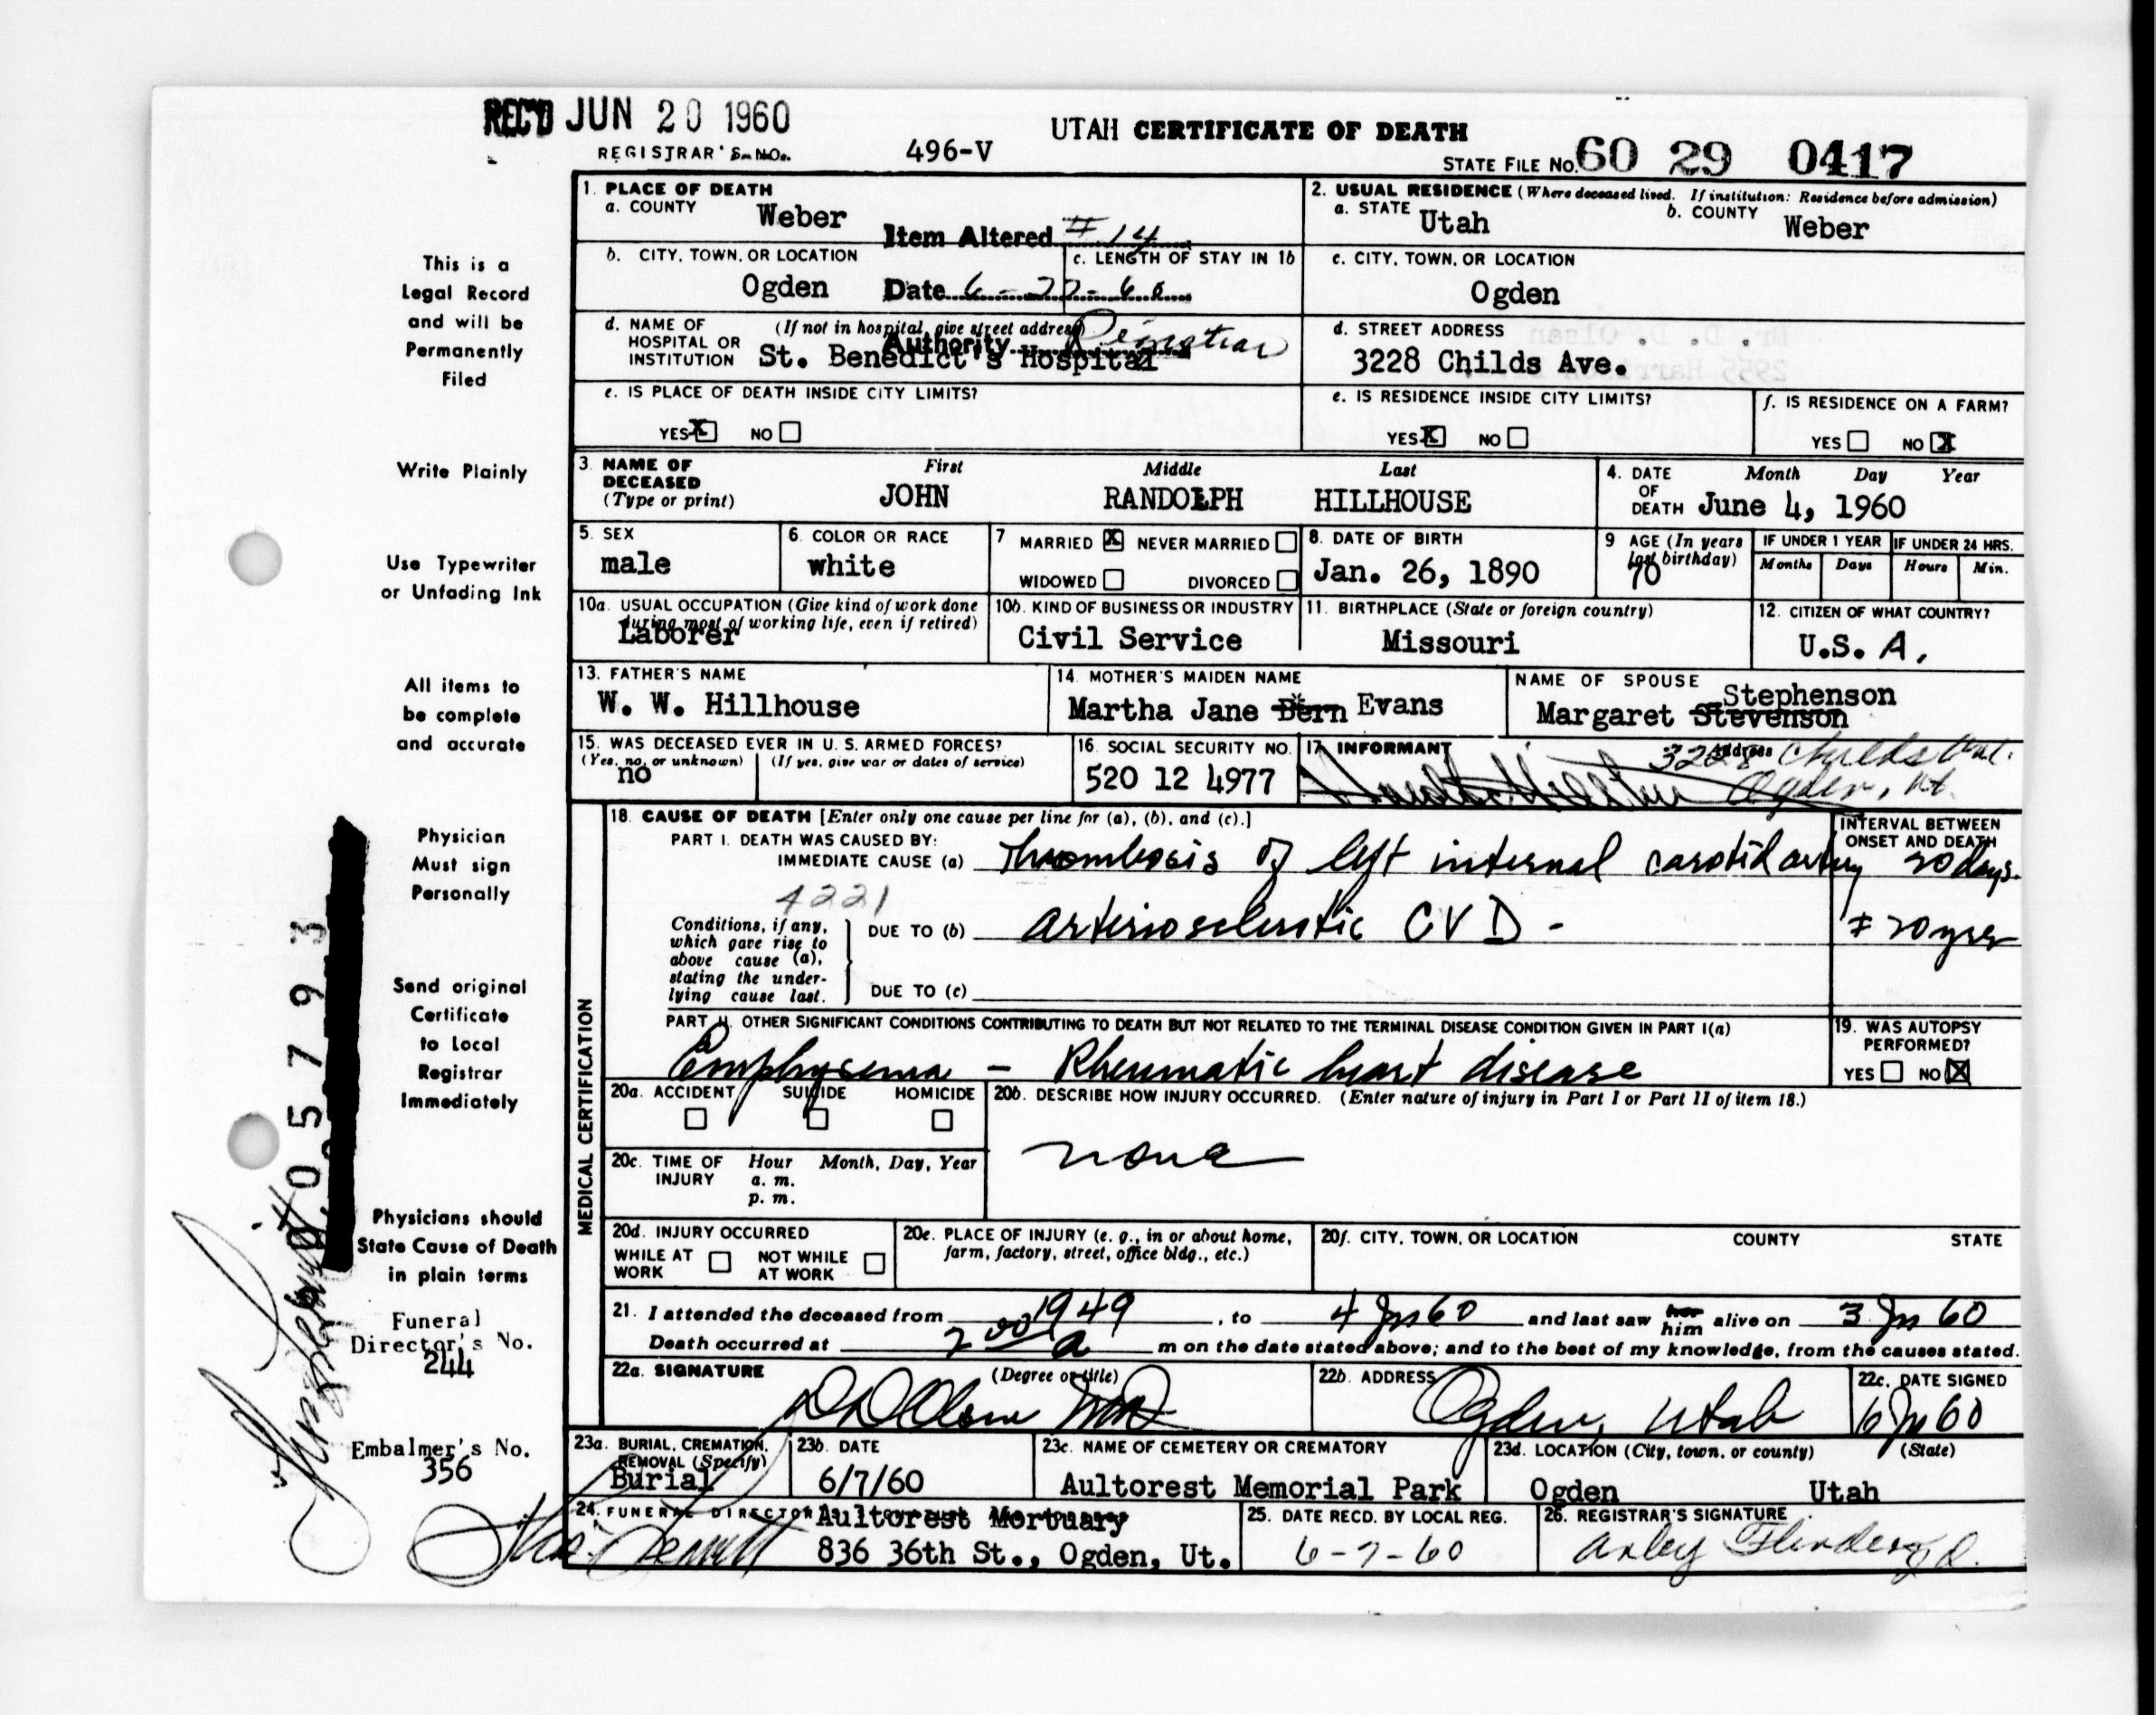 REC'D JUN 20 1960
REGISTRAR'S No. 496-V
UTAH CERTIFICATE OF DEATH
STATE FILE NO. 60 29 0417
This is a
Legal Record
and will be
Permanently
Filed
Write Plainly
Use Typewriter
or Unfading Ink
All items to
be complete
and accurate
Physician
Must sign
Personally
Send original
Certificate
to Local
Registrar
Immediately
Physicians should
State Cause of Death
in plain terms
Funeral
Director's No.
244
Embalmer's No.
356
05793
1. PLACE OF DEATH
a. COUNTY Weber
Item Altered #14
Date 6-27-60
Authority Registrar
b. CITY, TOWN, OR LOCATION
Ogden
c. LENGTH OF STAY IN 1b
d. NAME OF HOSPITAL OR INSTITUTION (If not in hospital, give street address)
St. Benedict's Hospital
e. IS PLACE OF DEATH INSIDE CITY LIMITS?
YES X NO
2. USUAL RESIDENCE (Where deceased lived. If institution: Residence before admission)
a. STATE Utah b. COUNTY Weber
c. CITY, TOWN, OR LOCATION
Ogden
d. STREET ADDRESS
3228 Childs Ave.
e. IS RESIDENCE INSIDE CITY LIMITS?
YES X NO
f. IS RESIDENCE ON A FARM?
YES NO X
3. NAME OF DECEASED (Type or print)
First Middle Last
JOHN RANDOLPH HILLHOUSE
4. DATE OF DEATH Month Day Year
June 4, 1960
5. SEX
male
6. COLOR OR RACE
white
7 MARRIED X NEVER MARRIED
WIDOWED DIVORCED
8. DATE OF BIRTH
Jan. 26, 1890
9 AGE (In years last birthday)
70
IF UNDER 1 YEAR IF UNDER 24 HRS.
Months Days Hours Min.
10a. USUAL OCCUPATION (Give kind of work done during most of working life, even if retired)
Laborer
10b. KIND OF BUSINESS OR INDUSTRY
Civil Service
11. BIRTHPLACE (State or foreign country)
Missouri
12. CITIZEN OF WHAT COUNTRY?
U.S. A.
13. FATHER'S NAME
W. W. Hillhouse
14. MOTHER'S MAIDEN NAME
Martha Jane Bern Evans
NAME OF SPOUSE
Stephenson
Margaret Stevenson
15. WAS DECEASED EVER IN U. S. ARMED FORCES?
(Yes, no, or unknown) (If yes, give war or dates of service)
no
16. SOCIAL SECURITY NO.
520 12 4977
17. INFORMANT Address
Ogden, Ut.
MEDICAL CERTIFICATION
18. CAUSE OF DEATH [Enter only one cause per line for (a), (b), and (c).]
INTERVAL BETWEEN ONSET AND DEATH
PART I. DEATH WAS CAUSED BY:
IMMEDIATE CAUSE (a) Thrombosis of left internal carotid artery 20 days.
4221
Conditions, if any, which gave rise to above cause (a), stating the underlying cause last.
DUE TO (b) arteriosclerotic CVD -
DUE TO (c)
PART II. OTHER SIGNIFICANT CONDITIONS CONTRIBUTING TO DEATH BUT NOT RELATED TO THE TERMINAL DISEASE CONDITION GIVEN IN PART I(a)
Emphysema - Rheumatic heart disease
19. WAS AUTOPSY PERFORMED?
YES NO X
20a. ACCIDENT SUICIDE HOMICIDE
20b. DESCRIBE HOW INJURY OCCURRED. (Enter nature of injury in Part I or Part II of item 18.)
none
20c. TIME OF INJURY Hour Month, Day, Year
a. m.
p. m.
20d. INJURY OCCURRED
WHILE AT WORK NOT WHILE AT WORK
20e. PLACE OF INJURY (e. g., in or about home, farm, factory, street, office bldg., etc.)
20f. CITY, TOWN, OR LOCATION COUNTY STATE
21. I attended the deceased from 1949, to 4 Jn 60 and last saw her him alive on 3 Jn 60
Death occurred at 2 00 a m on the date stated above; and to the best of my knowledge, from the causes stated.
22a. SIGNATURE (Degree or title)
D D Olsen MD
22b. ADDRESS
Ogden, Utah
22c. DATE SIGNED
6 Jn 60
23a. BURIAL, CREMATION, REMOVAL (Specify)
Burial
23b. DATE
6/7/60
23c. NAME OF CEMETERY OR CREMATORY
Aultorest Memorial Park
23d. LOCATION (City, town, or county) (State)
Ogden Utah
24. FUNERAL DIRECTOR Aultorest Mortuary
836 36th St., Ogden, Ut.
25. DATE RECD. BY LOCAL REG.
6-7-60
26. REGISTRAR'S SIGNATURE